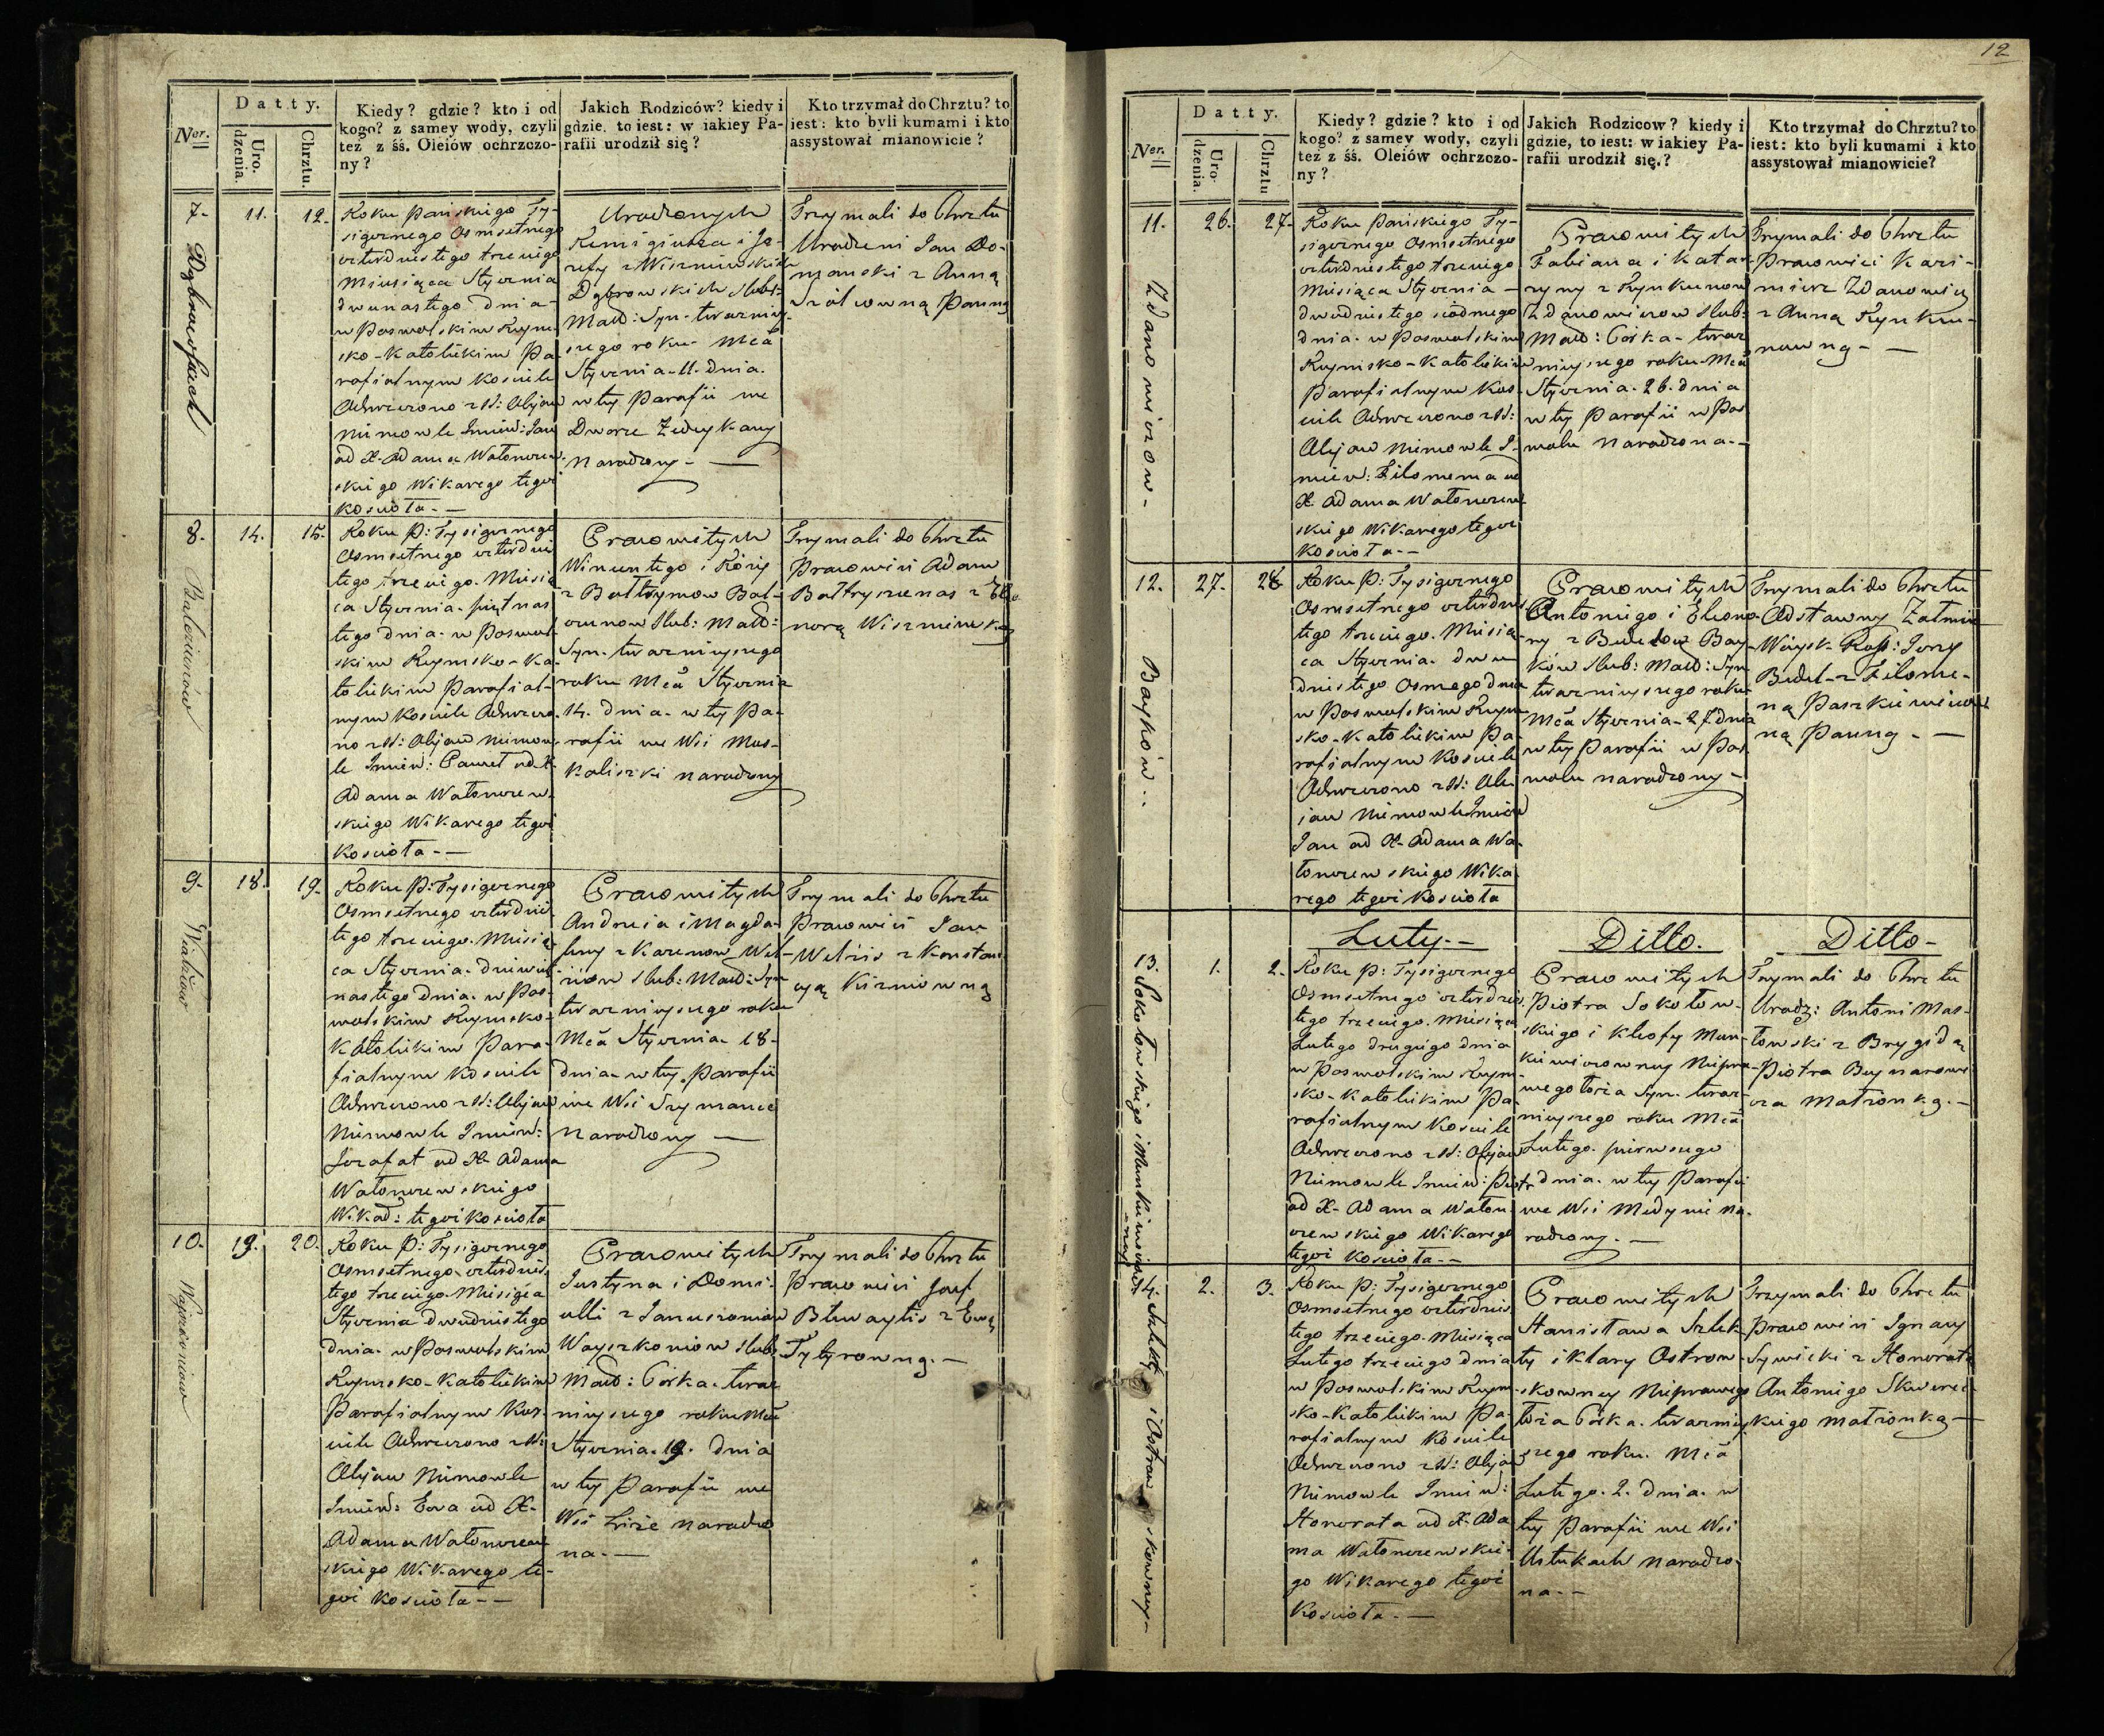 Ner.
Datty.
Uro-
dzenia.
Chrztu.
Kiedy? gdzie? kto i od
kogo? z samey wody, czyli
też z śś. Oleiów ochrzczo-
ny?
Jakich Rodziców? kiedy i
gdzie, to iest: w iakiey Pa-
rafii urodził się?
Kto trzymał do Chrztu? to
iest: kto byli kumami i kto
assystował mianowicie?
7.
11.
12.
Roku Pańskiego Ty-
siącznego Osmsetnego
czterdziestego trzeciego
Miesiąca Stycznia
dwunastego dnia
w Poswolskim Rzym-
sko-Katolickim Pa-
rafialnym Kościele
Ochrzczono z SS: Olejow
Niemowle Imien: Jan
od X. Adama Wołonczew-
skiego Wikarego tegoż
Kościoła.—
Urodzonych
Remigiusza i Jo-
zefy z Wiszniewskich
Dąbrowskich Slub:
Małż: Syn. teraźniey-
szego roku Mca
Stycznia. 11. dnia.
w tey Parafii we
Dworze
Narodzony.—
Trzymali do Chrztu
Urodzeni Jan Do-
mański z Anną
Panną
8.
14.
15.
Roku P: Tysiącznego
Osmsetnego czterdzies
tego trzeciego. Miesią
ca Stycznia. piętnas
tego dnia. w Poswol-
skim Rzymsko-Ka-
tolickim Parafial-
nym Kościele Ochrzczo-
no z SS: Olejow Niemow-
le Imien: Paweł od X.
Adama Wołonczew-
skiego Wikarego tegoż
Kościoła.—
Pracowitych
Wincentego i Róży
z
Slub: Małż:
Syn. teraźnieyszego
roku Mca Stycznia
14. dnia. w tey Pa-
rafii we Wsi Mos-
kaliszki narodzony
Trzymali do Chrztu
Pracowici Adam
z Eleo
norą Wiszniewską
9.
18.
19.
Roku P: Tysiącznego
Osmsetnego czterdzies
tego trzeciego. Miesią
ca Stycznia. dziewięt
nastego dnia. w Pos-
wolskim Rzymsko-
Katolickim Para-
fialnym Kościele
Ochrzczono z SS: Olejow
Niemowle Imien:
Jozafat od X. Adama
Wołonczewskiego
Wikar: tegoż Kościoła
Pracowitych
Andrzeia i Magda-
leny z
Slub: Małż: Syn
teraźnieyszego roku
Mca Stycznia. 18.
dnia. w tey Parafii
we Wsi Szymance
Narodzony —
Trzymali do Chrztu
Pracowici Jan
z Konstan
cyą
10.
19.
20.
Roku P: Tysiącznego
Osmsetnego czterdzies
tego trzeciego. Miesiąca
Stycznia dwudziestego
dnia. w Poswolskim
Rzymsko-Katolickim
Parafialnym Koś-
ciele Ochrzczono z SS:
Olejow Niemowle
Imien: Ewa od X.
Adama Wołonczew
skiego Wikarego te-
goż Kościoła—
Pracowitych
Justyna i Domi-
celli z
Slub:
Małż: Córka. teraź
nieyszego roku Mca
Stycznia. 19. dnia
w tey Parafii we
Wsi narodzo
na.—
Trzymali do Chrztu
Pracowici Jozef
z Ewą
12
Ner.
Datty.
Uro-
dzenia.
Chrztu
Kiedy? gdzie? kto i od
kogo? z samey wody, czyli
też z śś. Oleiów ochrzczo-
ny?
Jakich Rodzicow? kiedy i
gdzie, to iest: w iakiey Pa-
rafii urodził się?
Kto trzymał do Chrztu? to
iest: kto byli kumami i kto
assystował mianowicie?
11.
Zdanowiczow.
26.
27.
Roku Pańskiego Ty-
siącznego Osmsetnego
czterdziestego trzeciego
Miesiąca Stycznia
dwudziestego siódmego
dnia. w Poswolskim
Rzymsko-Katolickim
Parafialnym Koś-
ciele Ochrzczono z SS:
Olejow Niemowle I-
mien: Filomena od
X. Adama Wołonczew
skiego Wikarego tegoż
Kościoła.—
Pracowitych
Fabiana i Kata-
rzyny z Rynkunow
Zdanowiczow Slub:
Małż: Córka. teraź
nieyszego roku Mca
Stycznia. 26. dnia
w tey Parafii w Pos
wolu Narodzona.—
Trzymali do Chrztu
Pracowici Kazi-
mierz Zdanowicz
z Anną Rynku-
nowną.—
12.
Baykow.
27.
28.
Roku P: Tysiącznego
Osmsetnego czterdzies
tego trzeciego. Miesią
ca Stycznia. dwu
dziestego Osmego dnia
w Poswolskim Rzym
sko-Katolickim Pa-
rafialnym Kościele
Ochrzczono z SS: Ole
jow Niemowle Imien
Jan od X. Adama Wo-
łonczewskiego Wika
rego tegoż Kościoła
Pracowitych
Antoniego i Eleono-
ry z Bedelow Bay-
kow Slub: Małż: Syn
teraźnieyszego roku
Mca Stycznia. 27 dnia
w tey Parafii w Pos
wolu narodzony.—
Trzymali do Chrztu
Odstawny Żołnierz
Woysk Ross: Jerzy
Bedel z Filome-
ną Paszkiewiczow
ną Panną.—
Luty.—
Ditto.
Ditto—
13.
1.
2.
Roku P: Tysiącznego
Osmsetnego czterdzies
tego trzeciego. Miesiąca
Lutego drugiego dnia
w Poswolskim Rzym-
sko-Katolickim Pa-
rafialnym Kościele
Ochrzczono z SS: Olejow
Niemowle Imien: Piotr
od X. Adama Wołon-
czewskiego Wikarego
tegoż Kościoła.—
Pracowitych
Piotra Sokołow-
skiego i Kleofy Mun-
kiewiczowney Niepra-
wego łoża Syn. teraź-
nieyszego roku Mca
Lutego. pierwszego
dnia. w tey Parafii
we Wsi na-
rodzony.—
Trzymali do Chrztu
Urodz: Antoni Mas-
łowski z Brygidą
Piotra
cza Małżonką.—
14.
2.
3.
Roku P: Tysiącznego
Osmsetnego czterdzies
tego trzeciego. Miesiąca
Lutego trzeciego dnia
w Poswolskim Rzym-
sko-Katolickim Pa-
rafialnym Kościele
Ochrzczono z SS: Olejow
Niemowle Imien:
Honorata od X. Ada
ma Wołonczewskie-
go Wikarego tegoż
Kościoła.—
Pracowitych
Stanisława Szlek-
ty i Klary Ostrow-
skowney Nieprawego
łoża Córka. teraźniey
szego roku. Mca
Lutego. 2. dnia. w
tey Parafii we Wsi
Ustukach narodzo-
na.—
Trzymali do Chrztu
Pracowici Ignacy
z Honoratą
Antoniego
Małżonką—